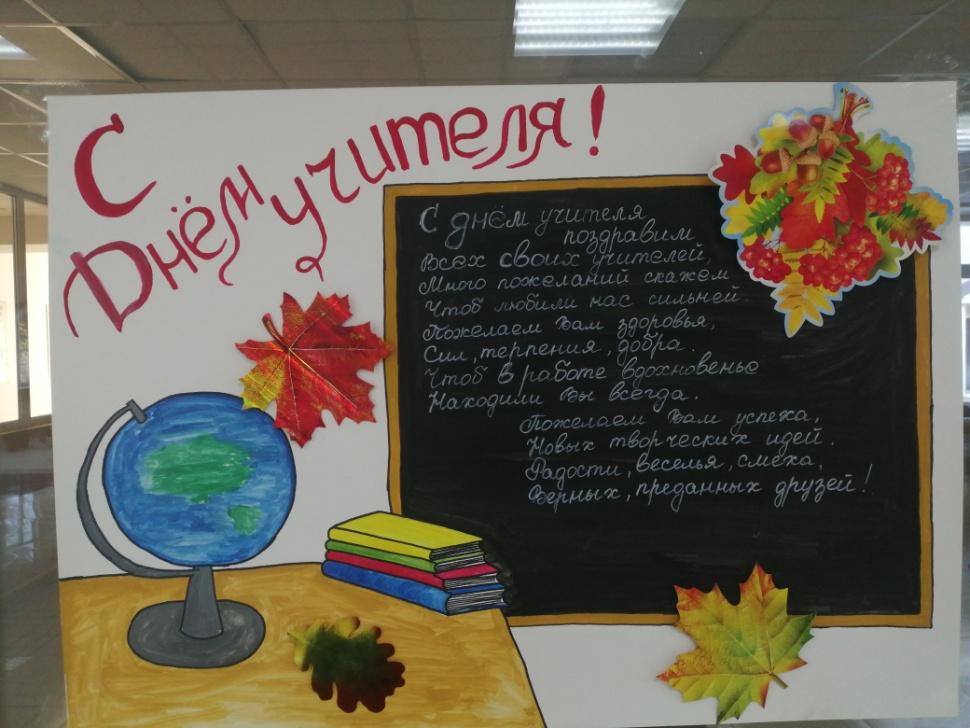 С
Днём учителя!
С днём учителя
поздравим
Всех своих учителей,
Много пожеланий скажем
Чтоб любили нас сильней
Пожелаем Вам здоровья,
Сил, терпения, добра.
Чтоб в работе вдохновенье
Находили Вы всегда.
Пожелаем Вам успеха,
Новых творческих идей.
Радости, веселья, смеха,
Верных, преданных друзей!